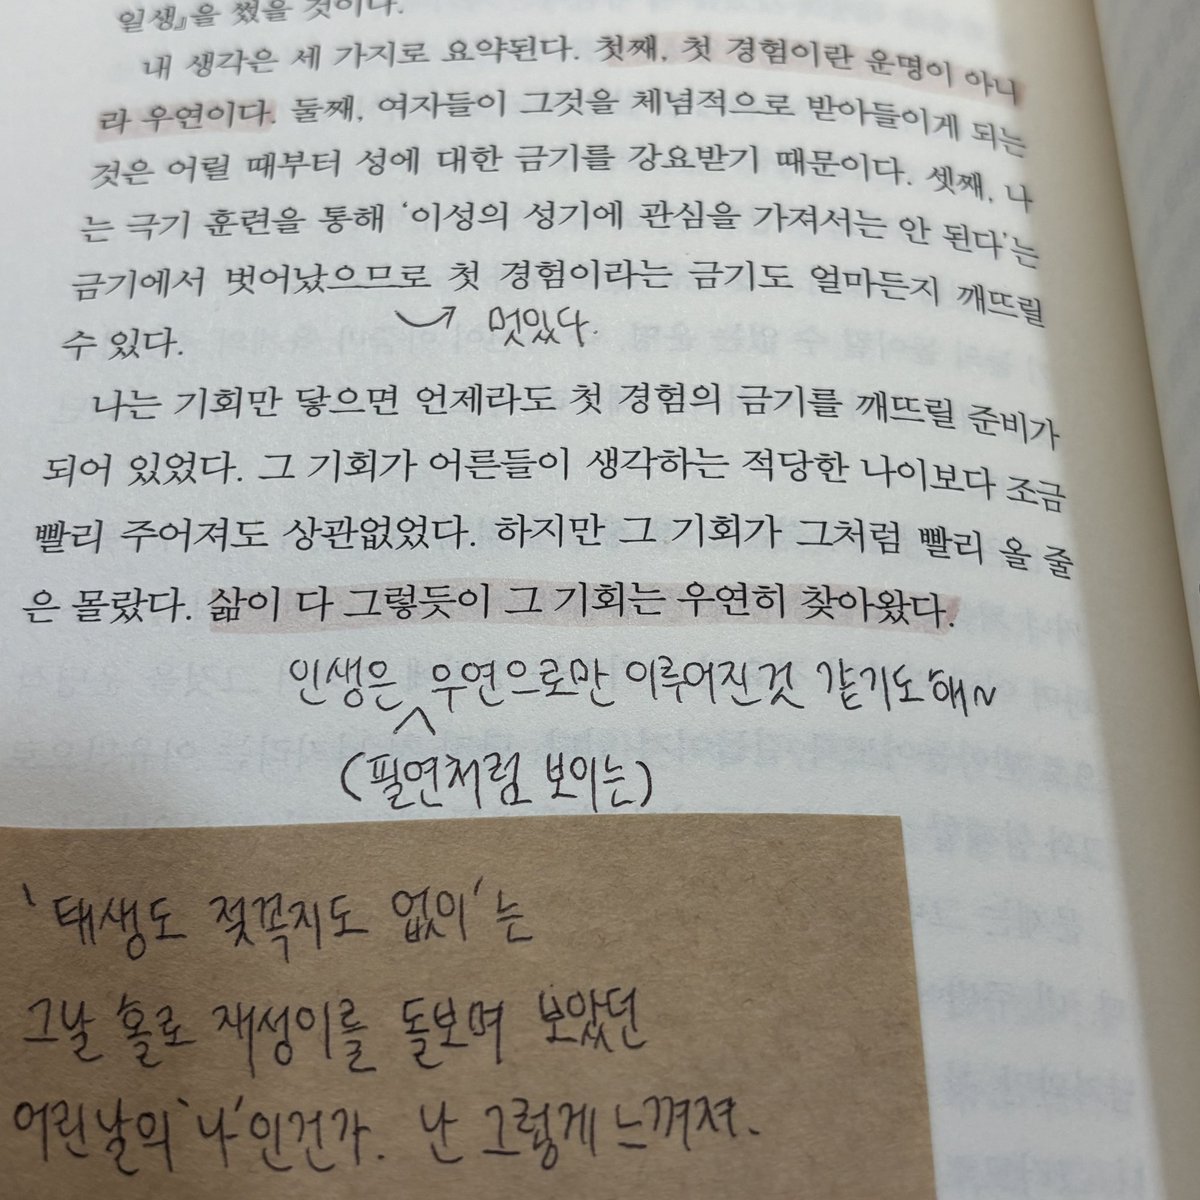 일생』을 썼을 것이다.
내 생각은 세 가지로 요약된다. 첫째, 첫 경험이란 운명이 아니
라 우연이다. 둘째, 여자들이 그것을 체념적으로 받아들이게 되는
것은 어릴 때부터 성에 대한 금기를 강요받기 때문이다. 셋째, 나
는 극기 훈련을 통해 ‘이성의 성기에 관심을 가져서는 안 된다’는
금기에서 벗어났으므로 첫 경험이라는 금기도 얼마든지 깨뜨릴
멋있다.
수 있다.
나는 기회만 닿으면 언제라도 첫 경험의 금기를 깨뜨릴 준비가
되어 있었다. 그 기회가 어른들이 생각하는 적당한 나이보다 조금
빨리 주어져도 상관없었다. 하지만 그 기회가 그처럼 빨리 올 줄
은 몰랐다. 삶이 다 그렇듯이 그 기회는 우연히 찾아왔다.
인생은 우연으로만 이루어진것 같기도해~
(필연처럼 보이는)
‘태생도 젖꼭지도 없이’는
그날 홀로 재성이를 돌보며 보았던
어린날의 ‘나’인건가. 난 그렇게 느껴져.